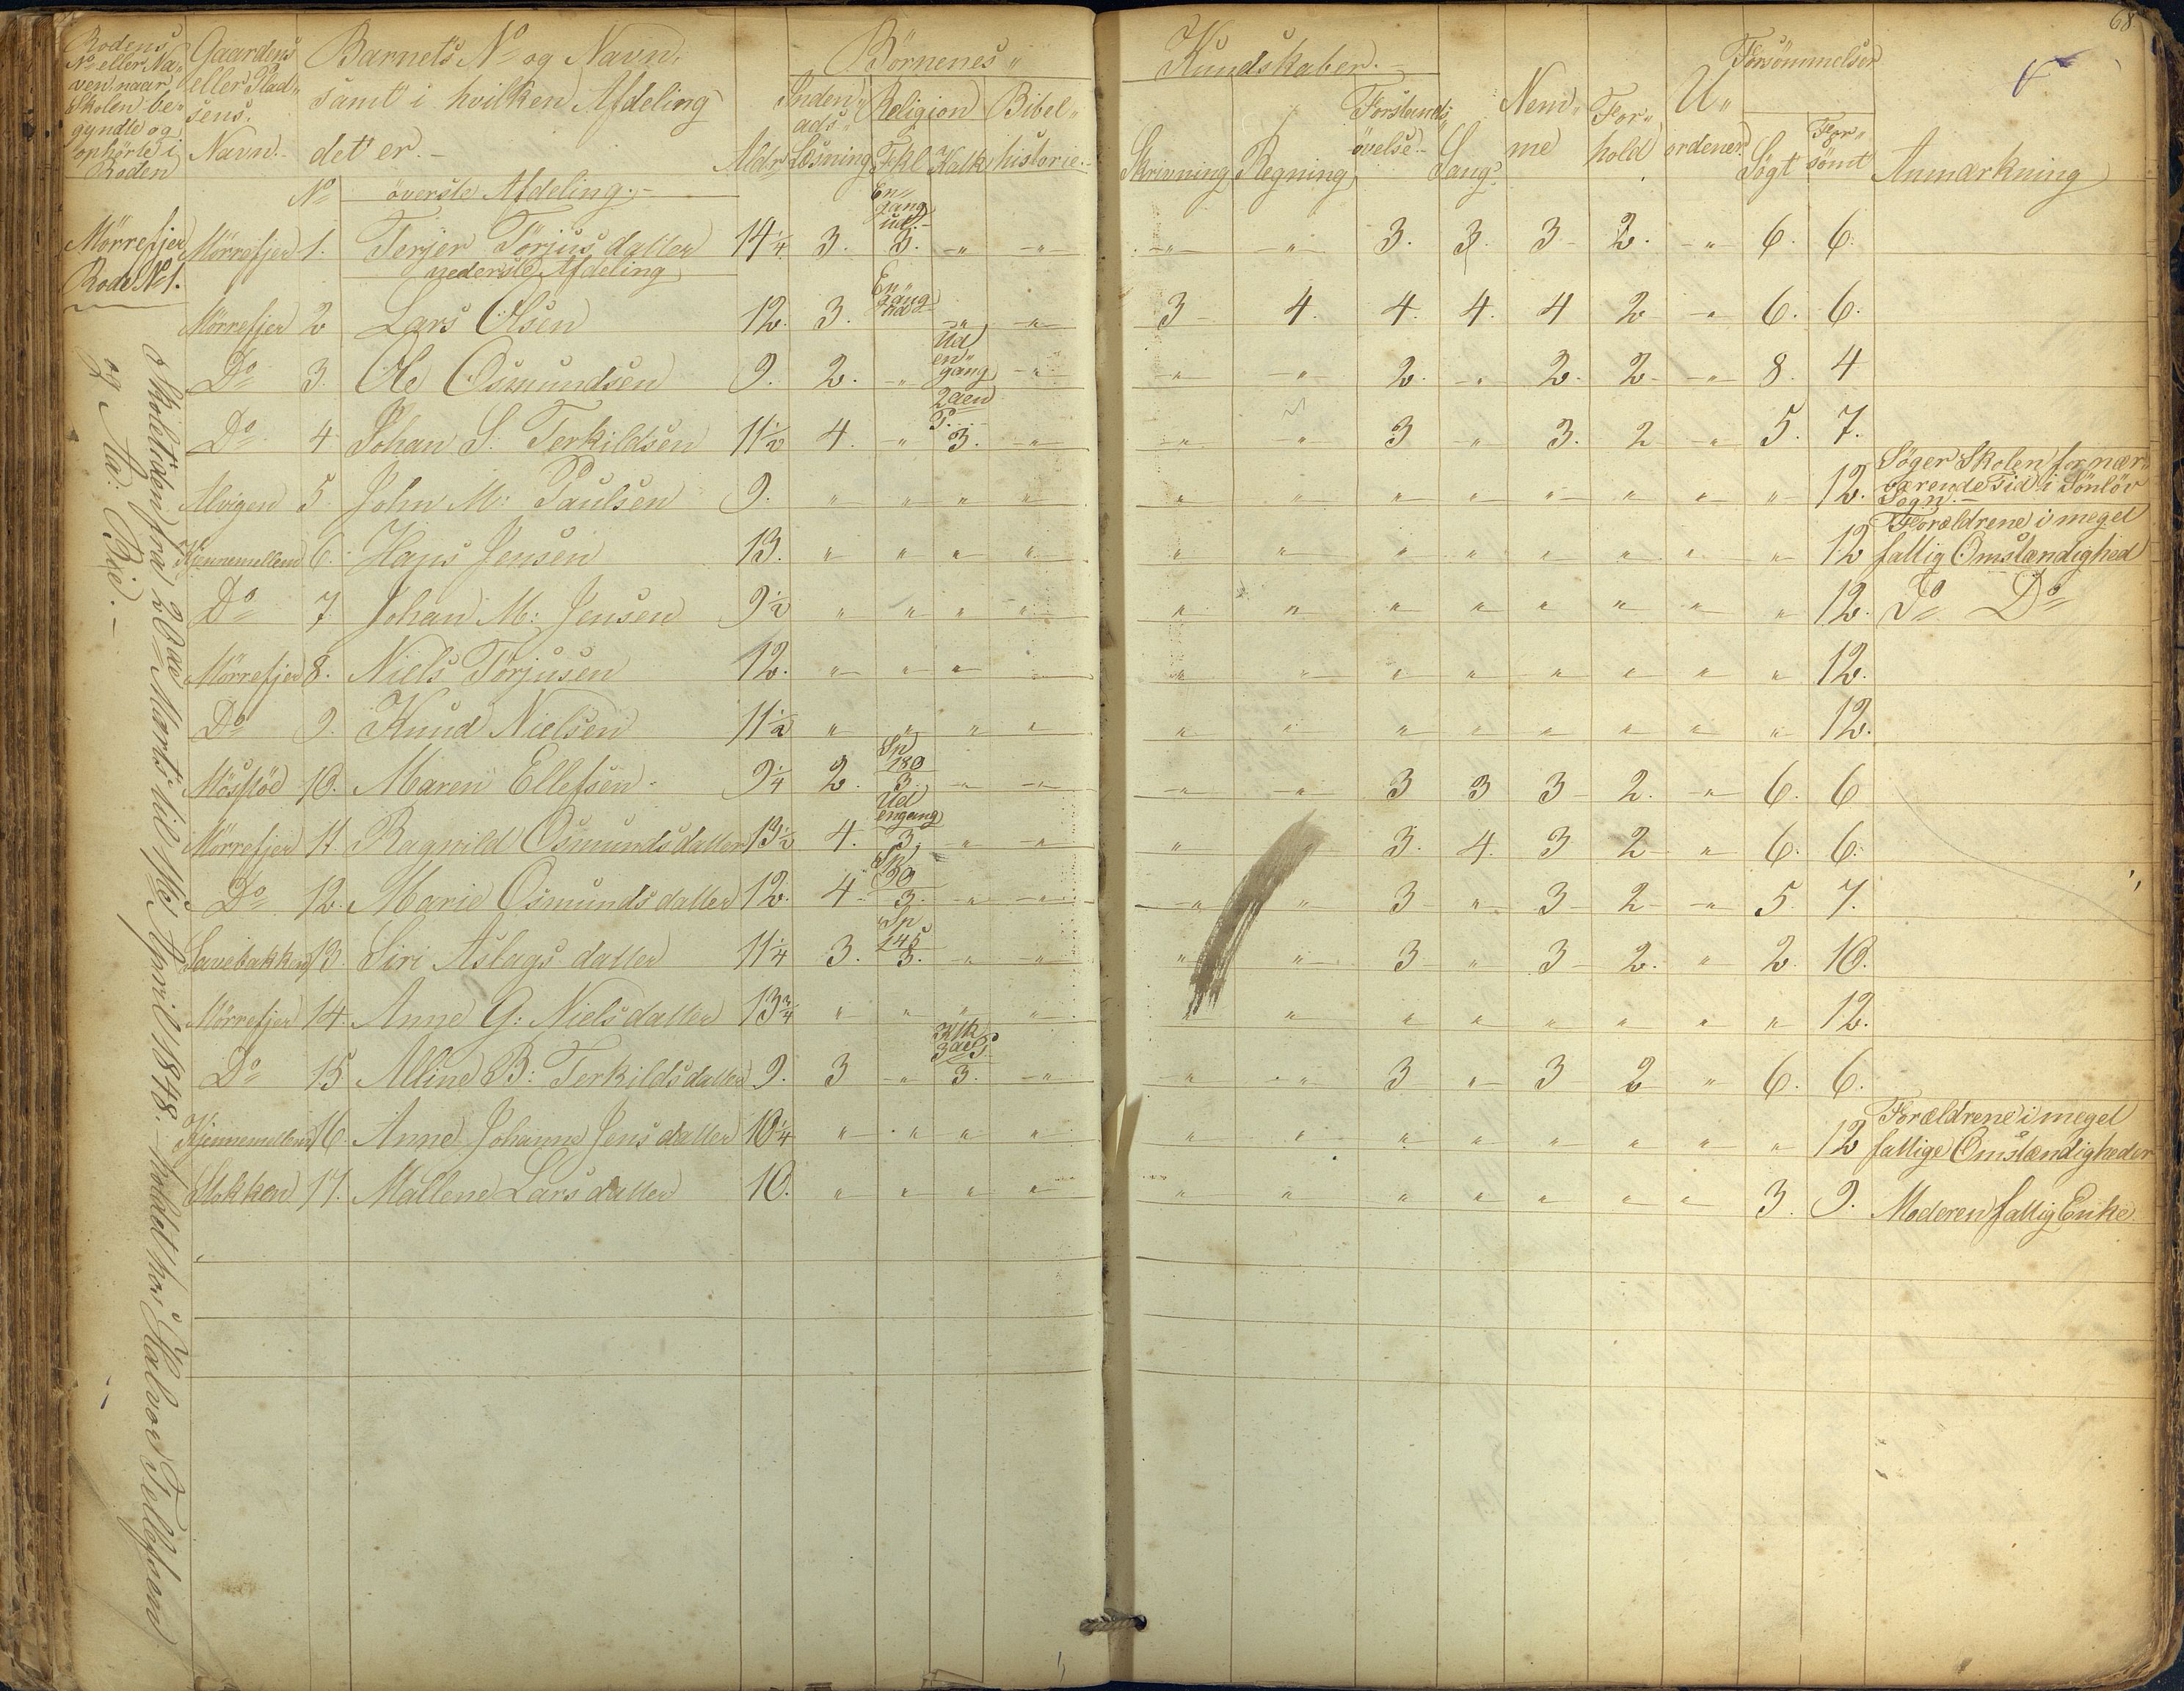 68
Rodens
No eller Na-
ven, naar
Skolen be-
gyndte og
ophörte i
Roden
Gaardens
eller Plad-
sens.
Navn.
Barnets No og Navn,
samt i hvilken Afdeling
det er.
Aldr
Börnenes
Inden-
ads-
Læsning
Religion
Fkl. Katk
Bibel-
historie.
Kundskaber.
Skrivning
Regning
Forstands-
övelse
Sang
Nem-
me
For-
hold
U-
ordener
Forsömmelser
Sögt
For-
sömt
Anmærkning
No överste Afdeling.
Mörrefjer
Rode No 1.
En-
gang
ud
Mörrefjer 1. Terjer Törjusdatter 14 1/4 3. 3. " " " " 3. 3. 3 2. " 6. 6.
nederste Afdeling
En-
gang
ud
Mörrefjer 2 Lars Olsen 12. 3. " " 3 4. 4. 4. 4 2 " 6. 6.
Ud
en-
gang
Do 3. Ole Osmundsen 9. 2. " " " " 2. " 2. 2 " 8. 4
2den
P.
Do 4 Johan S. Terkildsen 11 1/2 4. " 3. " " " 3 " 3. 2 " 5. 7.
Alvigen 5 John M: Paulsen 9. " " " " " " " " " " " " 12. Söger Skolen for nær-
værende Tid i Sönlöv
Sogn.
Kjennemellem 6. Hans Jensen 13. " " " " " " " " " " " " 12 Forældrene i meget
fattig Omstændighed
Do 7 Johan M: Jensen 9 1/2 " " " " " " " " " " " " 12. Do Do
Mörrefjer 8. Niels Törjusen 12. " " " " " " " " " " " 12.
Do 9. Knud Nielsen 11 1/2 " " " " " " " " " " " " 12.
Sp
180
Mösslöd 10. Maren Ellefsen 9 1/4 2. 3. " " " " 3 3 3 2. " 6. 6
Ud
engang
Mörrefjer 11. Ragnild Osmundsdatter 13 1/2 4. 3. " " " 3. 4. 3 2 " 6. 6.
Sp
90
Do 12. Marie Osmundsdatter 12. 4. 3. " " " " 3 " 3 2 " 5. 7.
Sp
145
Savebakken 13. Siri Aslagsdatter 11 1/4 3. 3. " " " " 3 " 3 2. " 2. 10.
Mörrefjer 14. Anne G: Nielsdatter 13 3/4 " " " " " " " " " " " " 12.
Ktk
3de P.
Do 15 Alline B: Terkildsdatter 9. 3 " 3. " " " 3 " 3 2 " 6. 6.
Kjennemellem 16. Anne Johanne Jensdatter 10 1/4 " " " " " " " " " " " " 12 Forældrene i meget
fattige Omstændigheder
Stokken 17. Mallene Larsdatter 10. " " " " " " " " " " " 3. 9. Moderen fattig Enke
Skoletiden fra 20de Marts til 1ste April 1848. holdt hos Halvor Tellefsen
og Aa: Bie.